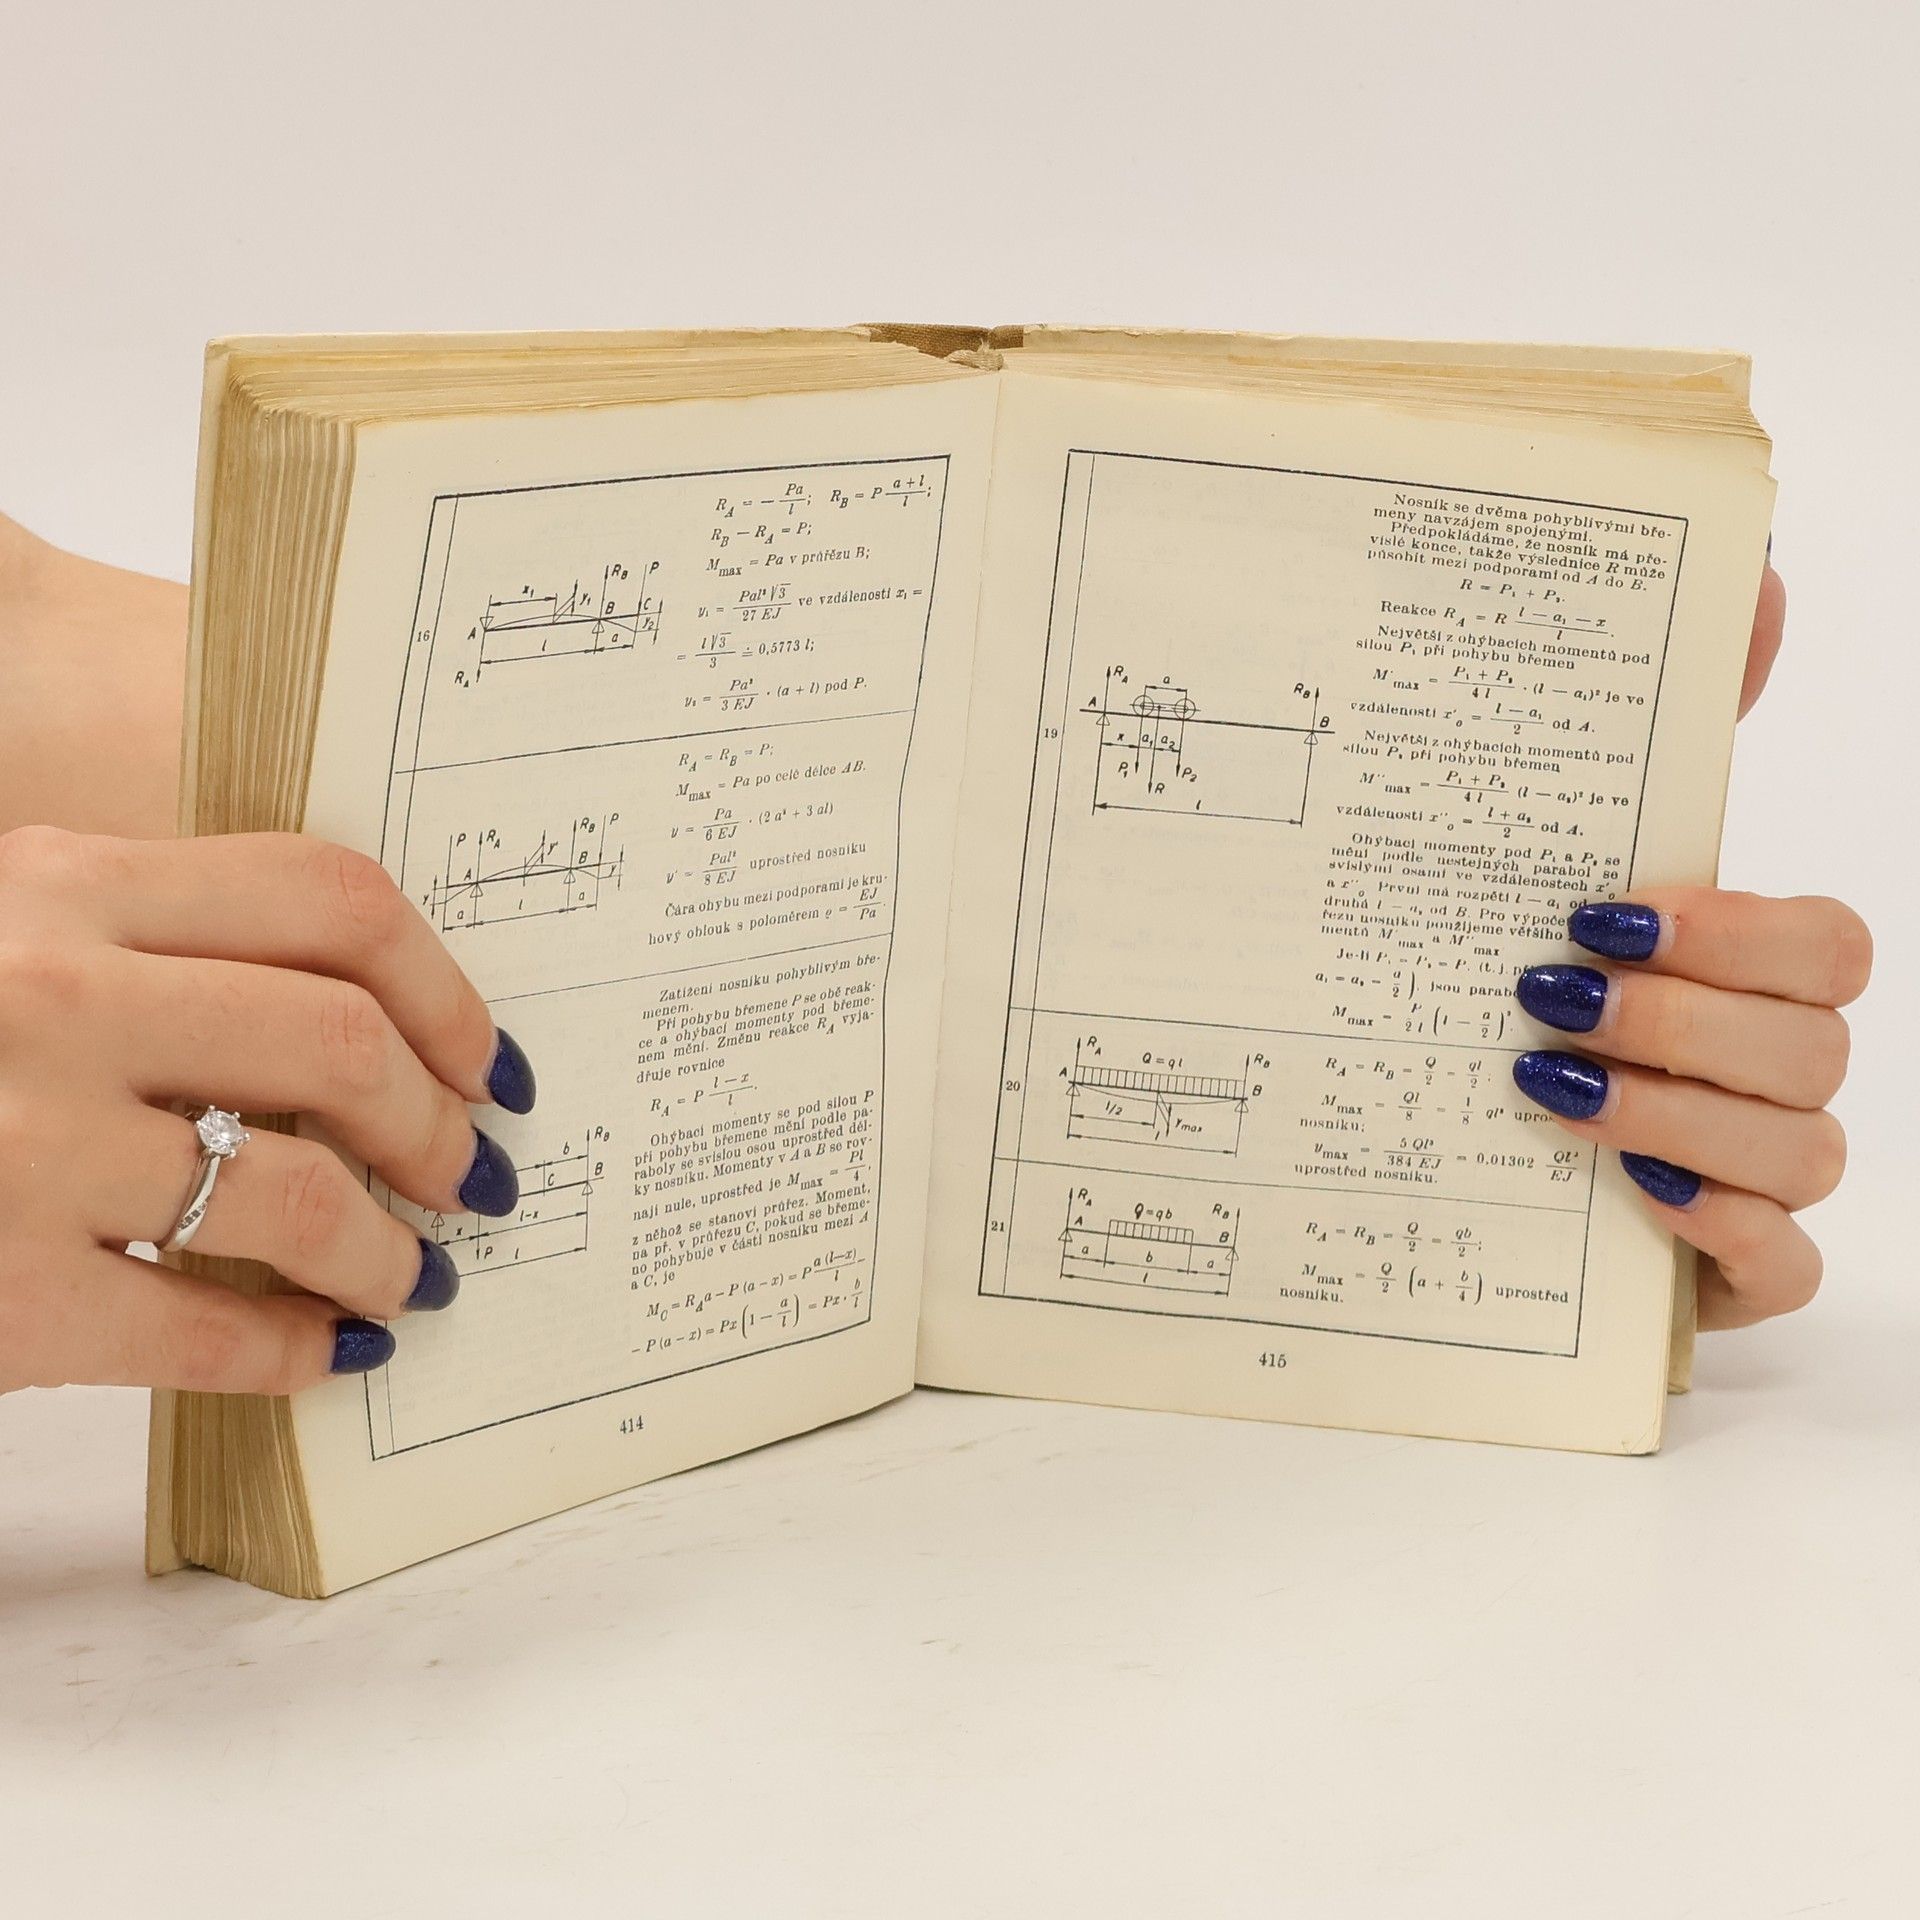 16
R_A = − Pa/l; R_B = P (a + l)/l;
R_B − R_A = P;
M_max = Pa v průřezu B;
y₁ = Pal² √3 / 27 EJ ve vzdálenosti x₁ =
= l√3 / 3 ≐ 0,5773 l;
y₂ = Pa² / 3 EJ · (a + l) pod P.
x₁ y₁ R_B P
A B C y₂
l a
R_A
R_A = R_B = P;
M_max = Pa po celé délce AB.
y = Pa / 6 EJ · (2 a² + 3 al)
y′ = Pal² / 8 EJ uprostřed nosníku
Čára ohybu mezi podporami je kru-
hový oblouk s poloměrem ϱ = EJ / Pa.
P R_A y′ R_B P
y A B y
a l a
Zatížení nosníku pohyblivým bře-
menem.
Při pohybu břemene P se obě reak-
ce a ohýbací momenty pod břeme-
nem mění. Změnu reakce R_A vyja-
dřuje rovnice
R_A = P (l − x)/l.
Ohýbací momenty se pod silou P
při pohybu břemene mění podle pa-
raboly se svislou osou uprostřed dél-
ky nosníku. Momenty v A a B se rov-
nají nule, uprostřed je M_max = Pl/4,
z něhož se stanoví průřez. Moment,
na př. v průřezu C, pokud se břeme-
no pohybuje v části nosníku mezi A
a C, je
M_C = R_A a − P (a − x) = P a (l−x)/l −
− P (a − x) = Px (1 − a/l) = Px · b/l
b R_B
C B
x l−x
P l
414
19
Nosník se dvěma pohyblivými bře-
meny navzájem spojenými.
Předpokládáme, že nosník má pře-
vislé konce, takže výslednice R může
působit mezi podporami od A do B.
R = P₁ + P₂.
Reakce R_A = R (l − a₁ − x)/l.
Největší z ohýbacích momentů pod
silou P₁ při pohybu břemen
M′_max = (P₁ + P₂)/4 l · (l − a₁)² je ve
vzdálenosti x′₀ = (l − a₁)/2 od A.
Největší z ohýbacích momentů pod
silou P₂ při pohybu břemen
M″_max = (P₁ + P₂)/4 l (l − a₂)² je ve
vzdálenosti x″₀ = (l + a₂)/2 od A.
Ohýbací momenty pod P₁ a P₂ se
mění podle nestejných parabol se
svislými osami ve vzdálenostech x′₀
a x″₀. První má rozpětí l − a₁ od
druhá l − a₂ od B. Pro výpočet
řezu nosníku použijeme většího
mentů M′_max a M″_max
Je-li P₁ = P₂ = P, (t. j.
a₁ = a₂ = a/2), jsou
M_max = P/2 l (l − a/2)².
R_A a R_B
A B
x a₁ a₂
P₁ P₂
R
l
20
R_A = R_B = Q/2 = ql/2;
M_max = Ql/8 = 1/8 ql²
nosníku;
y_max = 5 Ql³ / 384 EJ = 0,01302 Ql³/EJ
uprostřed nosníku.
R_A Q=ql R_B
A B
l/2 y_max
l
21
R_A = R_B = Q/2 = qb/2;
M_max = Q/2 (a + b/4) uprostřed
nosníku.
R_A Q=qb R_B
A B
a b a
l
415